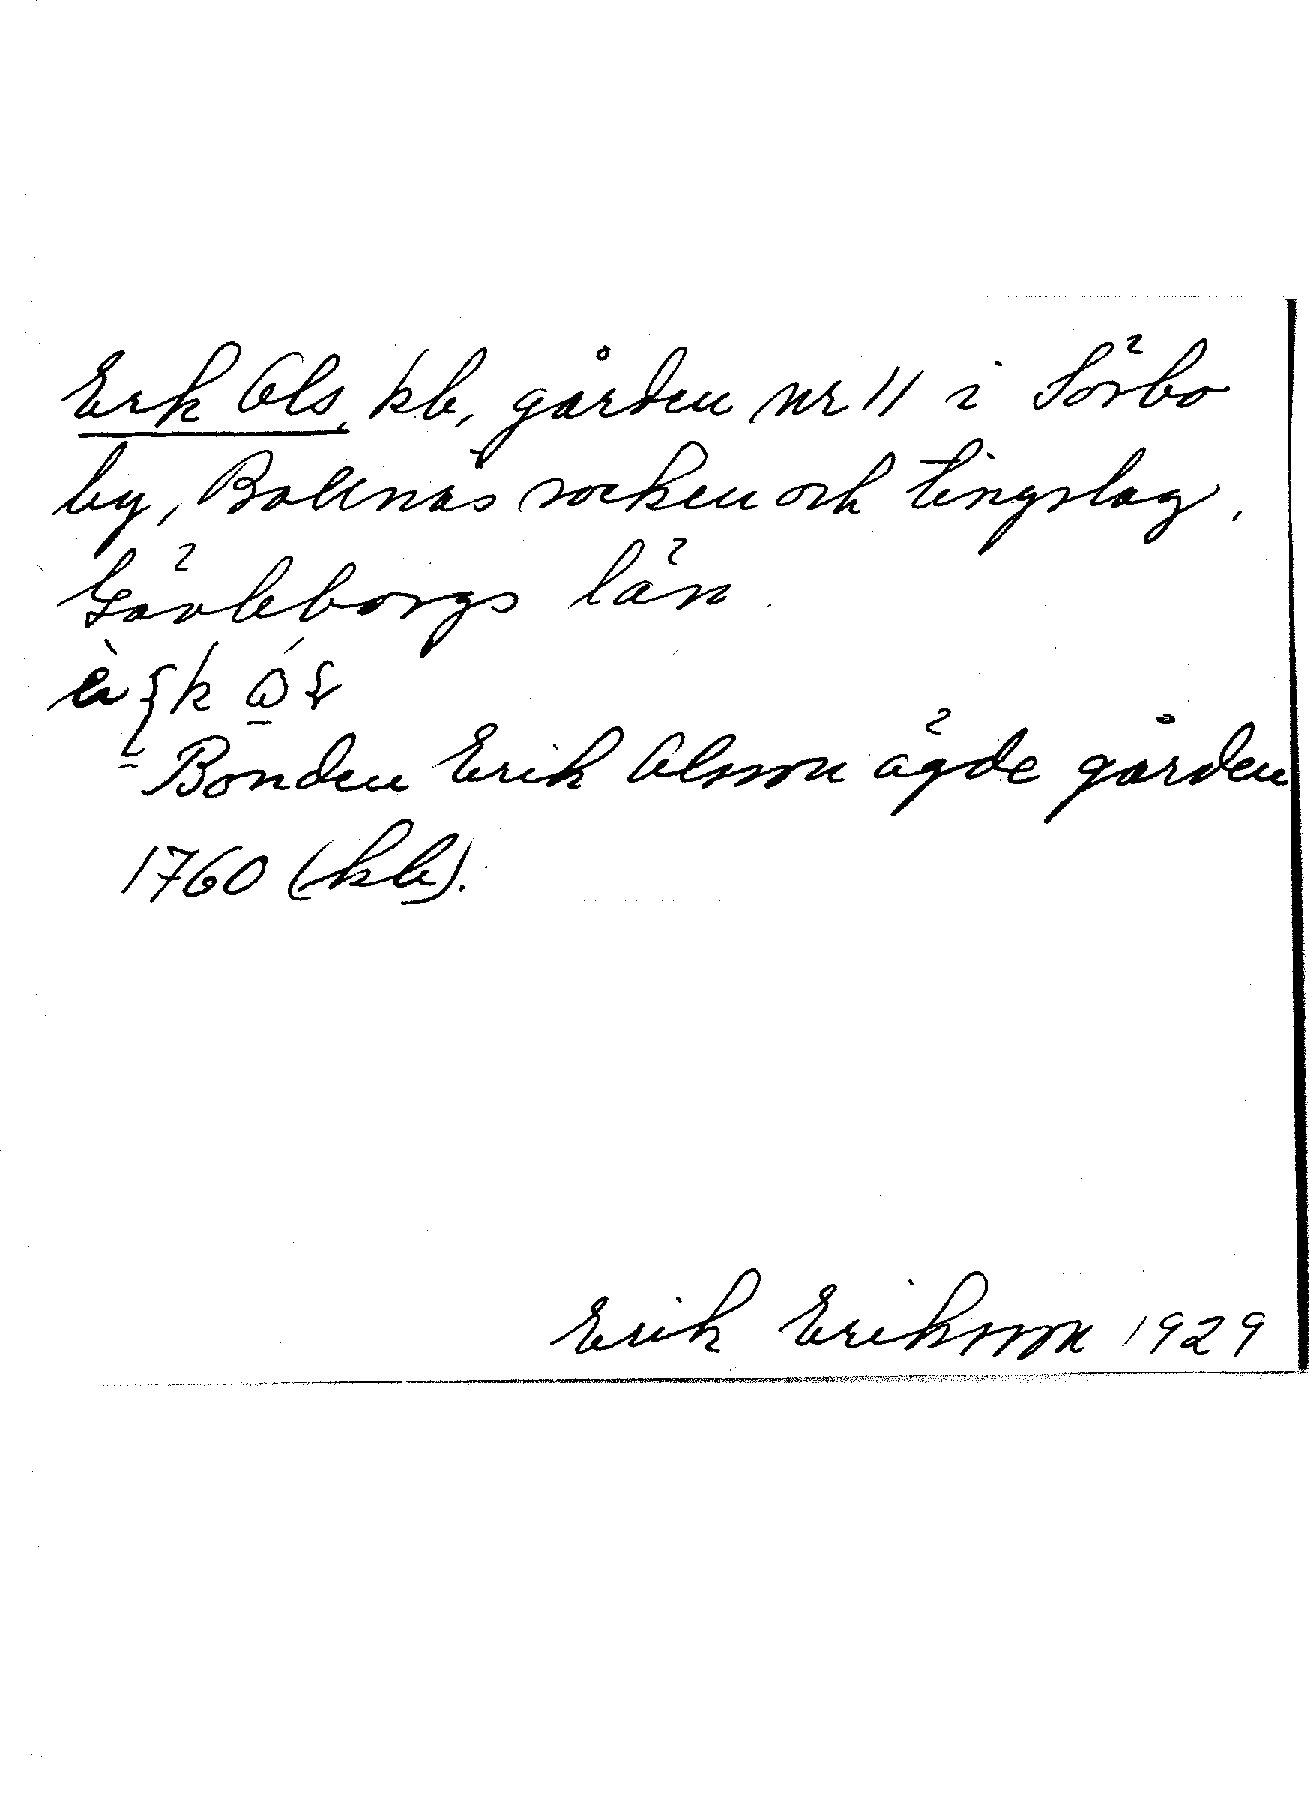 Erk Ols, kb, gården nr 11 i Sörbo
by, Bollnäs socken och tingslag.
Gävleborgs län.
Bonden Erik Olsson ägde gården
1760 (kb).
Erik Eriksson 1929